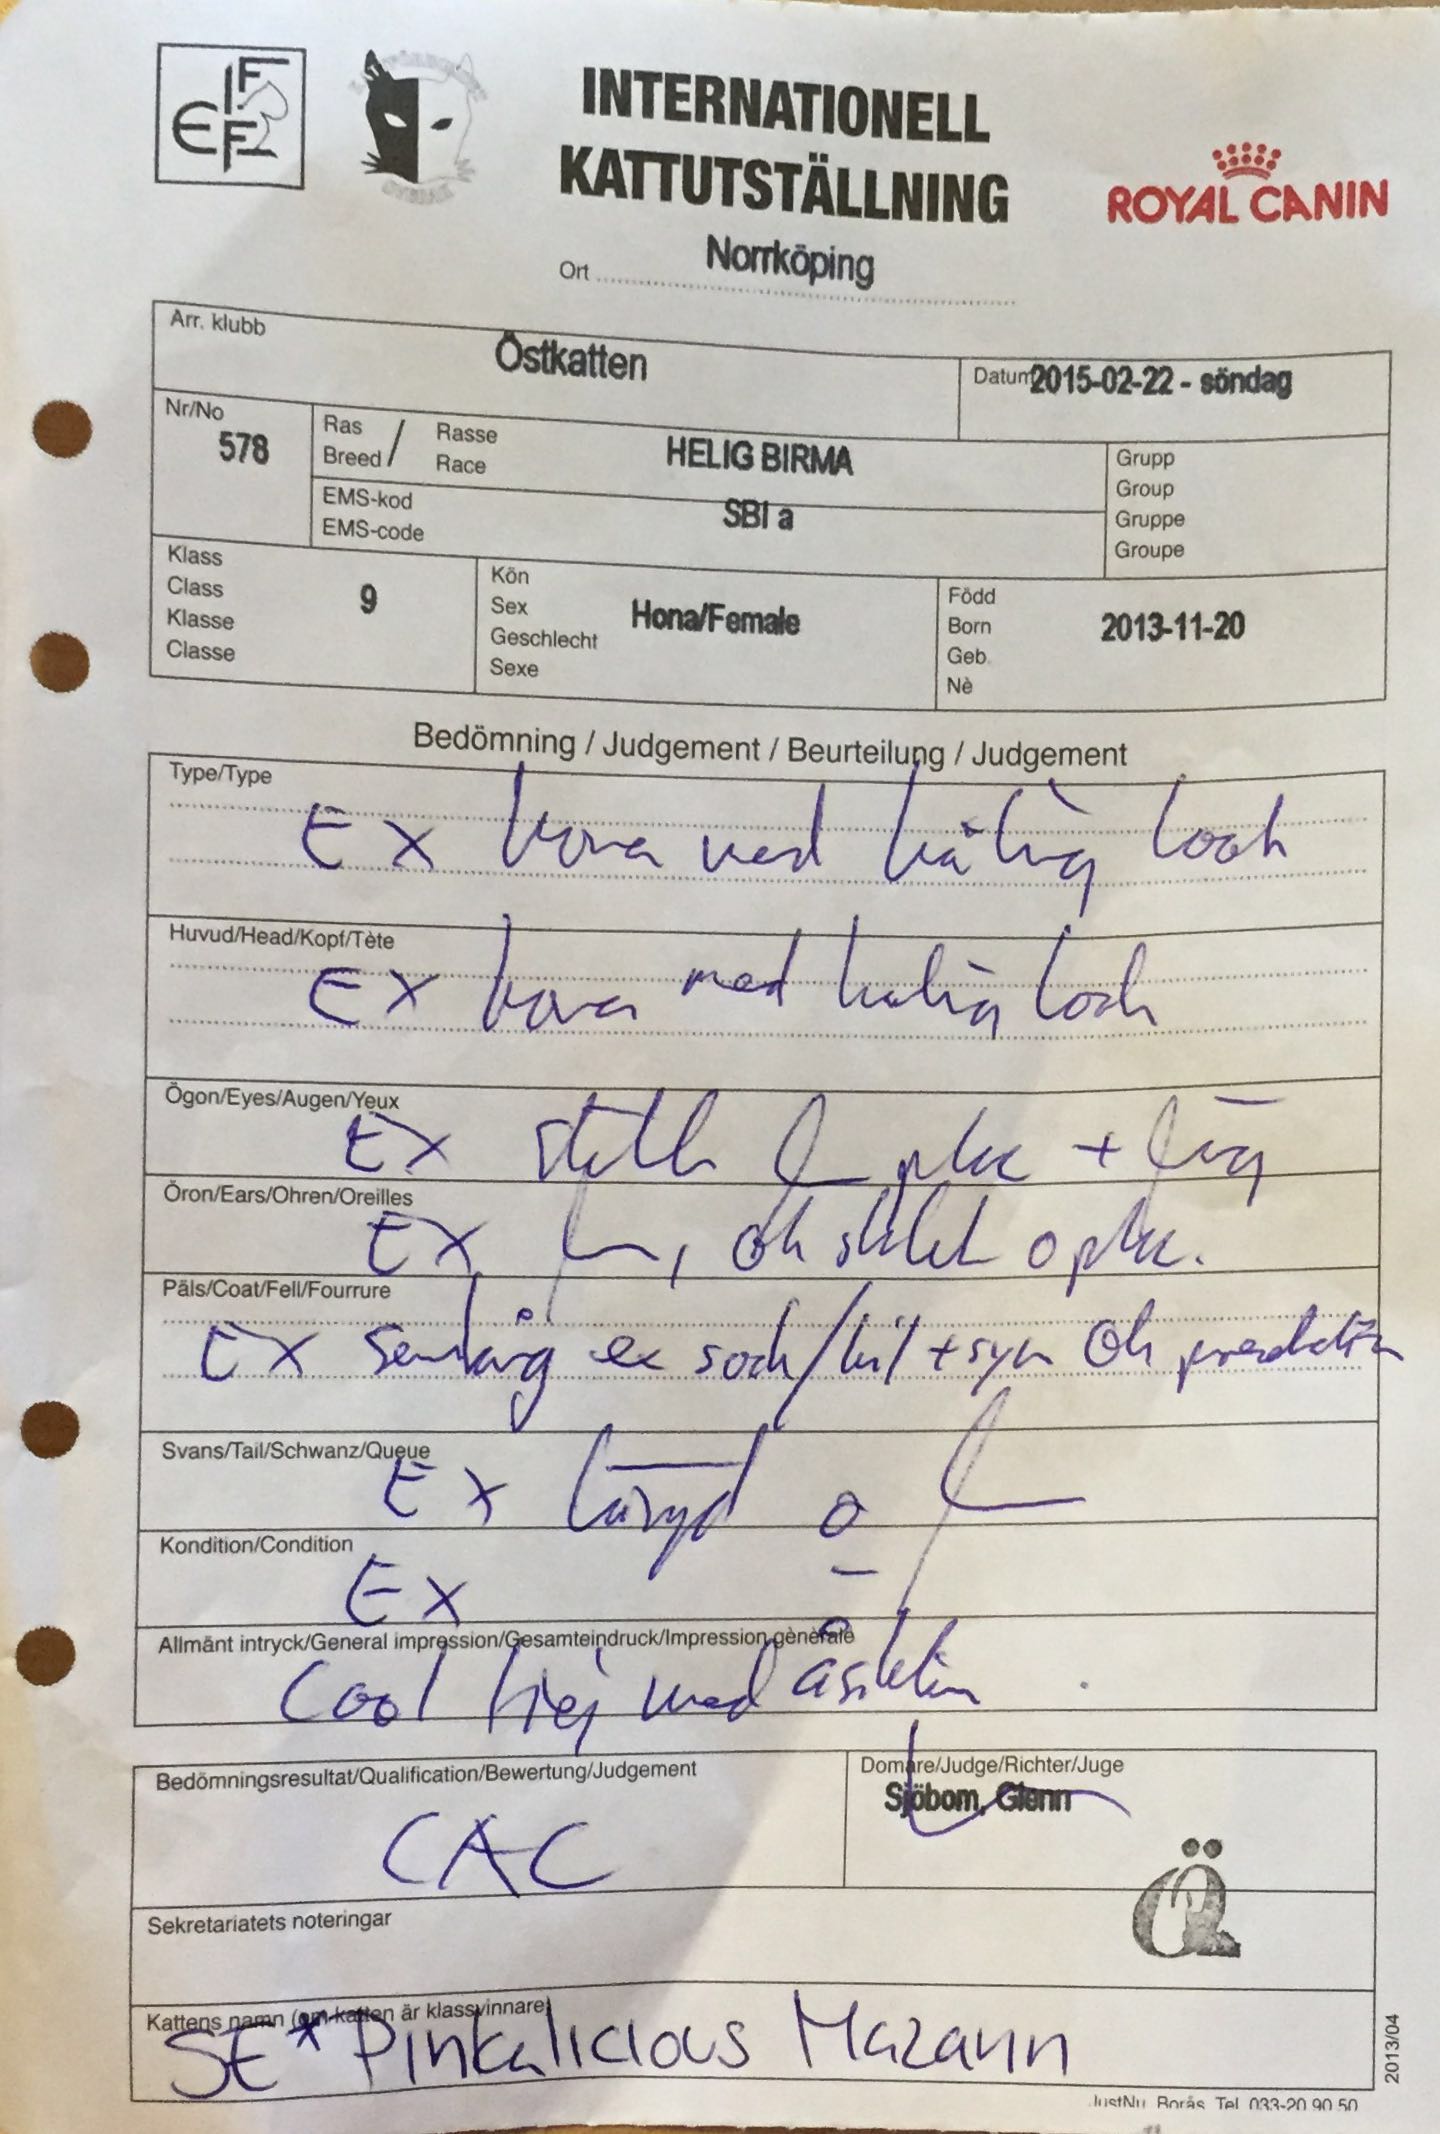 FIFe
INTERNATIONELL
KATTUTSTÄLLNING
ROYAL CANIN
Ort Norrköping
Arr. klubb
Östkatten
Datum 2015-02-22 - söndag
Nr/No
578
Ras
Breed / Rasse
Race
HELIG BIRMA
EMS-kod
EMS-code
SBI a
Grupp
Group
Gruppe
Groupe
Klass
Class
Klasse
Classe
9
Kön
Sex
Geschlecht
Sexe
Hona/Female
Född
Born
Geb.
Nè
2013-11-20
Bedömning / Judgement / Beurteilung / Judgement
Type/Type
EX med härlig look
Huvud/Head/Kopf/Tète
EX med look
Ögon/Eyes/Augen/Yeux
EX + färg
Öron/Ears/Ohren/Oreilles
EX
Päls/Coat/Fell/Fourrure
EX semilång
Svans/Tail/Schwanz/Queue
EX längd o
Kondition/Condition
EX
Allmänt intryck/General impression/Gesamteindruck/Impression gènèrale
Cool tjej med åsikter
Bedömningsresultat/Qualification/Bewertung/Judgement
CAC
Domare/Judge/Richter/Juge
Sjöbom, Glenn
Sekretariatets noteringar
Kattens namn (om katten är klassvinnare)
SE* Pinkalicious Mazann
2013/04
JustNu Borås Tel 033-20 90 50